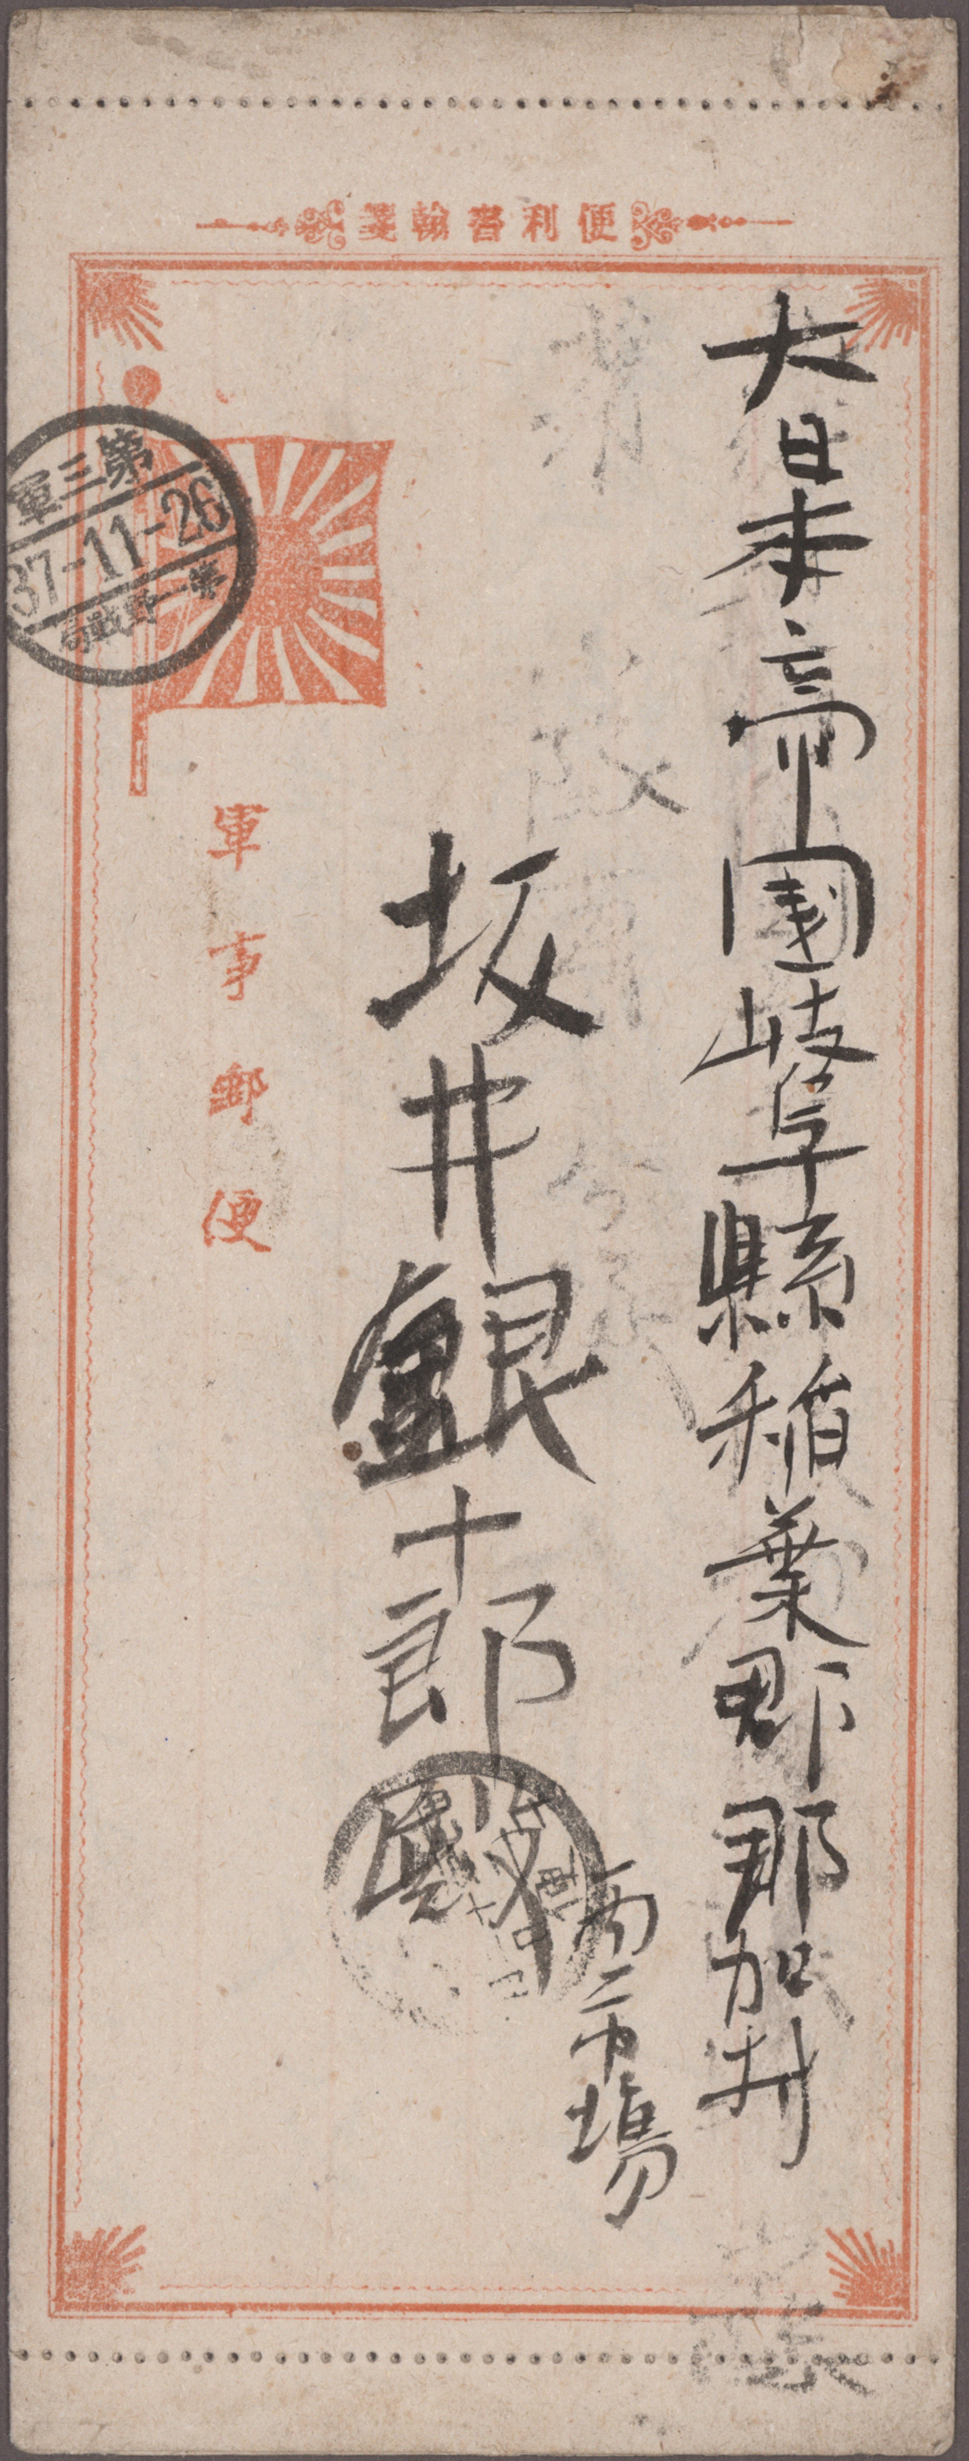 便利書翰箋
大日本帝國岐阜縣稲葉郡那加村
西市場
坂井銀十郎殿
軍事郵便
第三軍
37-11-26
第一野戰局